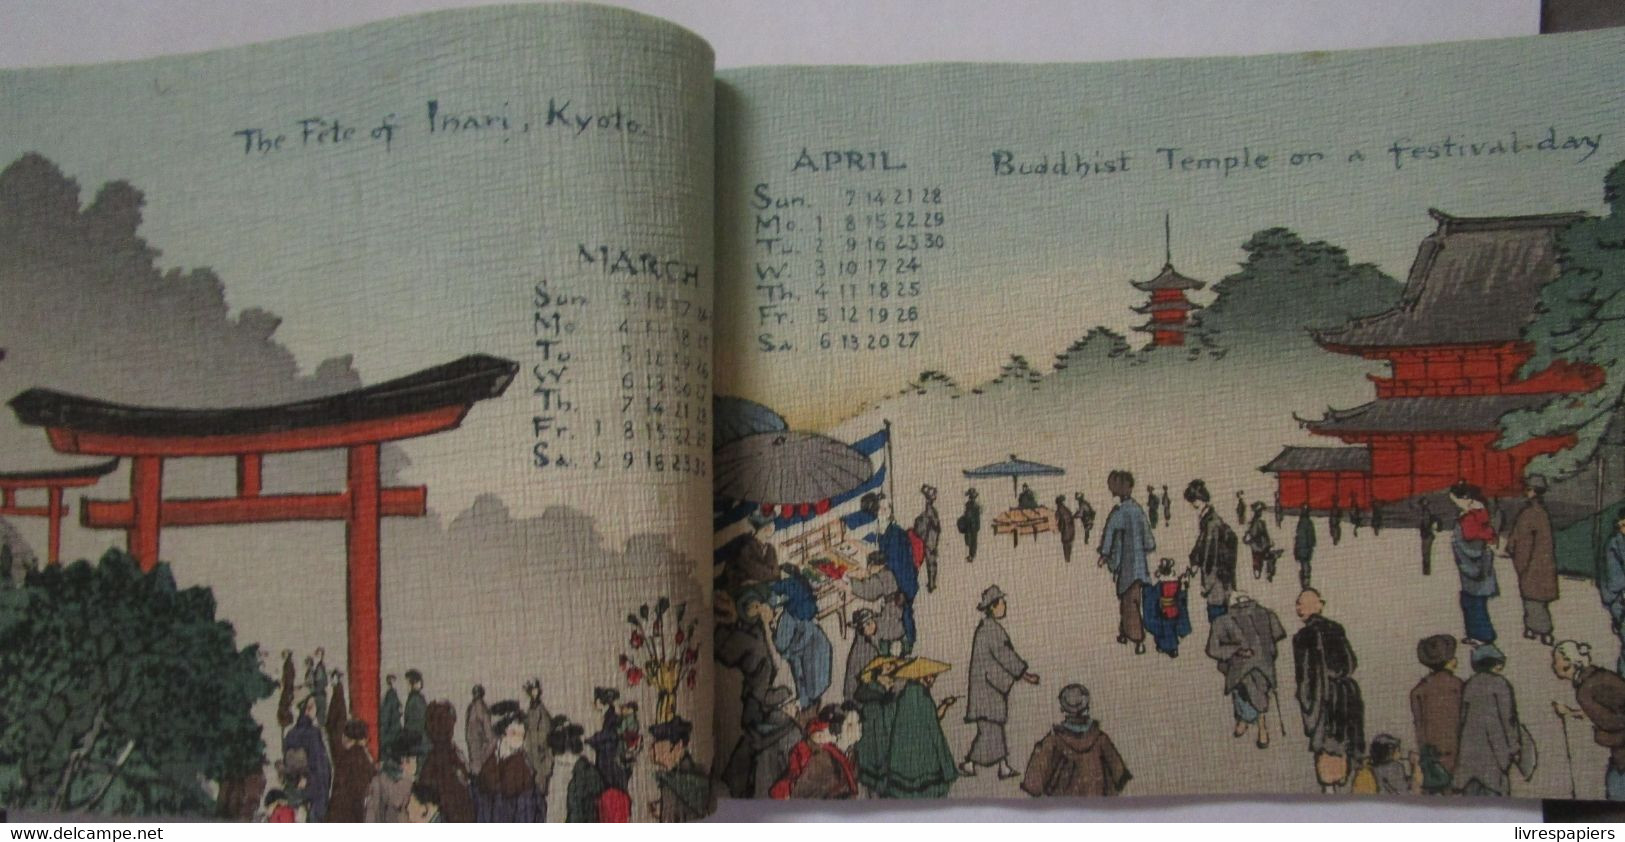 The Fête of Inari, Kyoto.
MARCH
Sun 3 10 17 24
Mo 4 11 18 25
Tu. 5 12 19 26
W. 6 13 20 27
Th. 7 14 21 28
Fr. 1 8 15 22 29
Sa. 2 9 16 23 30
APRIL
Sun. 7 14 21 28
Mo. 1 8 15 22 29
Tu. 2 9 16 23 30
W. 3 10 17 24
Th. 4 11 18 25
Fr. 5 12 19 26
Sa. 6 13 20 27
Buddhist Temple on a festival-day
www.delcampe.net
livrespapiers